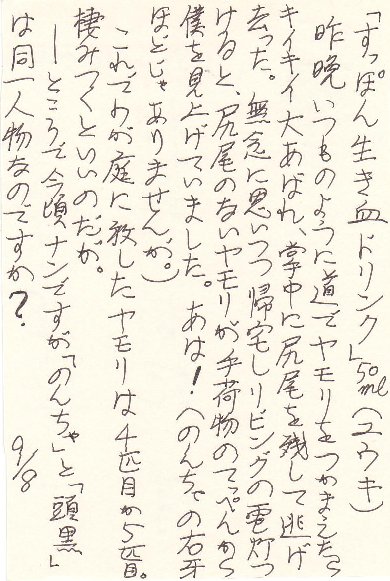 「すっぽん生き血ドリンク」50ml(ユウキ)
昨晩いつものように道でヤモリをつかまえたら
キイキイ大あばれ、掌中に尻尾を残して逃げ
去った。無念に思いつつ帰宅しリビングの電灯つ
けると、尻尾のないヤモリが手荷物のてっぺんから
僕を見上げていました。あは!(のんちゃの右牙
ほどじゃありませんが。)
これでわが庭に放したヤモリは4匹目か5匹目。
棲みつくといいのだが。
―ところで今頃ナンですが「のんちゃ」と「頭黒」
は同一人物なのですか?
9/8